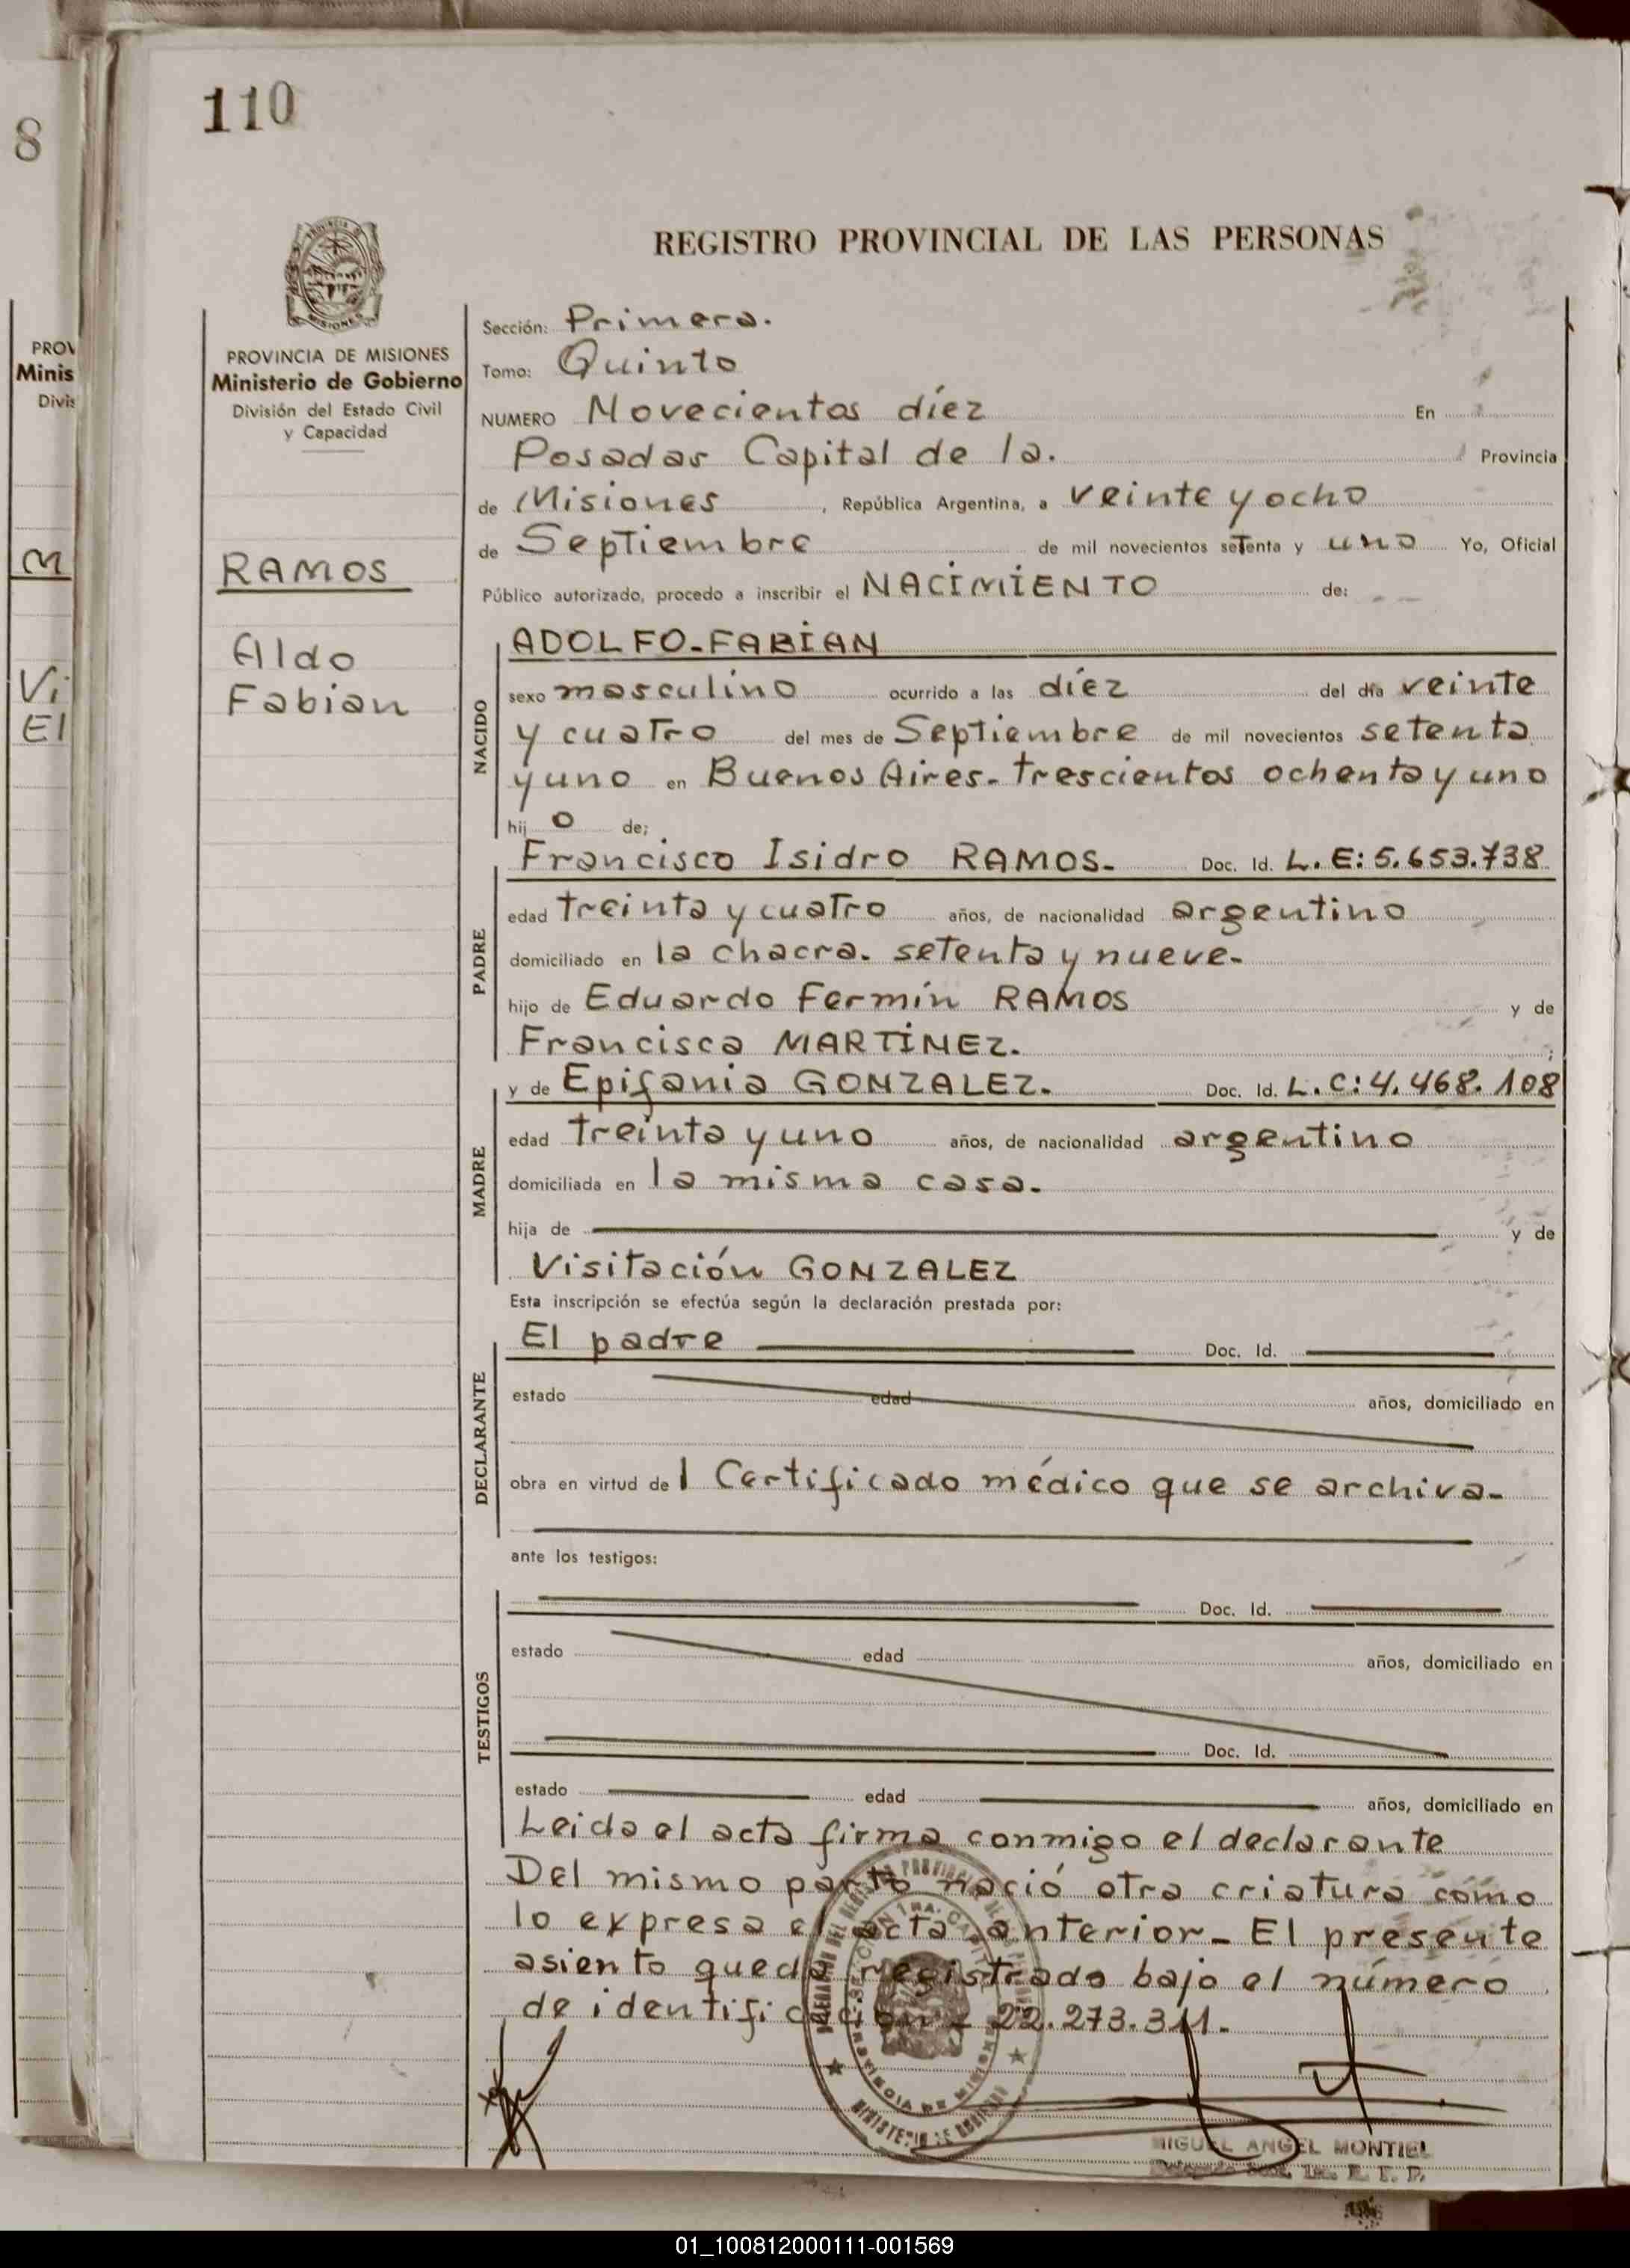 110
8
REGISTRO PROVINCIAL DE LAS PERSONAS
PROVINCIA DE MISIONES
Ministerio de Gobierno
División del Estado Civil
y Capacidad
PROV
Minis
Divis
M
Vi
El
RAMOS
Aldo
Fabian
Sección: Primera.
Tomo: Quinto
NUMERO Novecientos díez En
Posadas Capital de la. Provincia
de Misiones, República Argentina, a veinte y ocho
de Septiembre de mil novecientos setenta y uno Yo, Oficial
Público autorizado, procedo a inscribir el NACIMIENTO de:
NACIDO
ADOLFO-FABIAN
sexo masculino ocurrido a las díez del día veinte
y cuatro del mes de Septiembre de mil novecientos setenta
y uno en Buenos Aires- trescientos ochenta y uno
hij o de;
PADRE
Francisco Isidro RAMOS- Doc. Id. L. E: 5.653.738
edad treinta y cuatro años, de nacionalidad argentino
domiciliado en la chacra. setenta y nueve-
hijo de Eduardo Fermín RAMOS y de
Francisca MARTINEZ. ;
MADRE
y de Epifania GONZALEZ- Doc. Id. L. C: 4.468.108
edad treinta y uno años, de nacionalidad argentino
domiciliada en la misma casa-
hija de y de
Visitación GONZALEZ
Esta inscripción se efectúa según la declaración prestada por:
DECLARANTE
El padre Doc. Id.
estado edad años, domiciliado en
obra en virtud de l Certificado médico que se archiva-
ante los testigos:
TESTIGOS
Doc. Id.
estado edad años, domiciliado en
Doc. Id.
estado edad años, domiciliado en
Leida el acta firma conmigo el declarante
Del mismo parto nació otra criatura cómo
lo expresa el acta anterior- El presente
asiento queda registrado bajo el número
de identificación - 22.273.311-
MIGUEL ANGEL MONTIEL
01_100812000111-001569